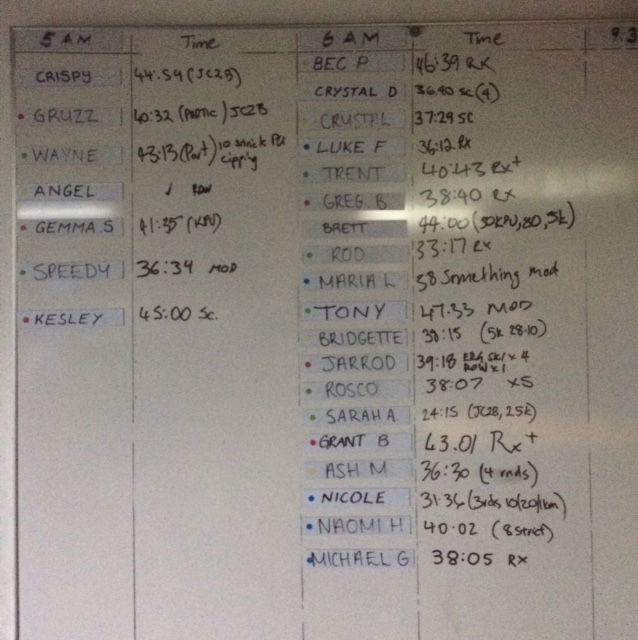 5 AM Time
CRISPY 44:59 (JC2B)
GRUZZ 40:32 ) JC2B
WAYNE 43:13 (Part) 10
ANGEL
GEMMA.S 41:35
SPEEDY 36:34 MOD
KESLEY 45:00 Sc.
6 AM Time
BEC P 46:39 RX
CRYSTAL D 36:40 SC (4)
CRUSTIL 37:29 SC
LUKE F 36:12 RX
TRENT 40:43 RX+
GREG.B 38:40 RX
BRETT 44:00 (50KPU, 80, 5k)
ROD 33:17 RX
MARIA L 38 Something mod
TONY 47.33 MOD
BRIDGETTE 38:15 (5k 28:10)
JARROD 39:18 ERG 5k/ x 4
ROW x 1
ROSCO 38:07 XS
SARAH A 24:15 (JC2B, 2.5k)
GRANT B 43.01 Rx+
ASH M 36:30 (4 rnds)
NICOLE 31:36 (3rds 10/20/1km)
NAOMI H 40:02
MICHAEL G 38:05 RX
9.3